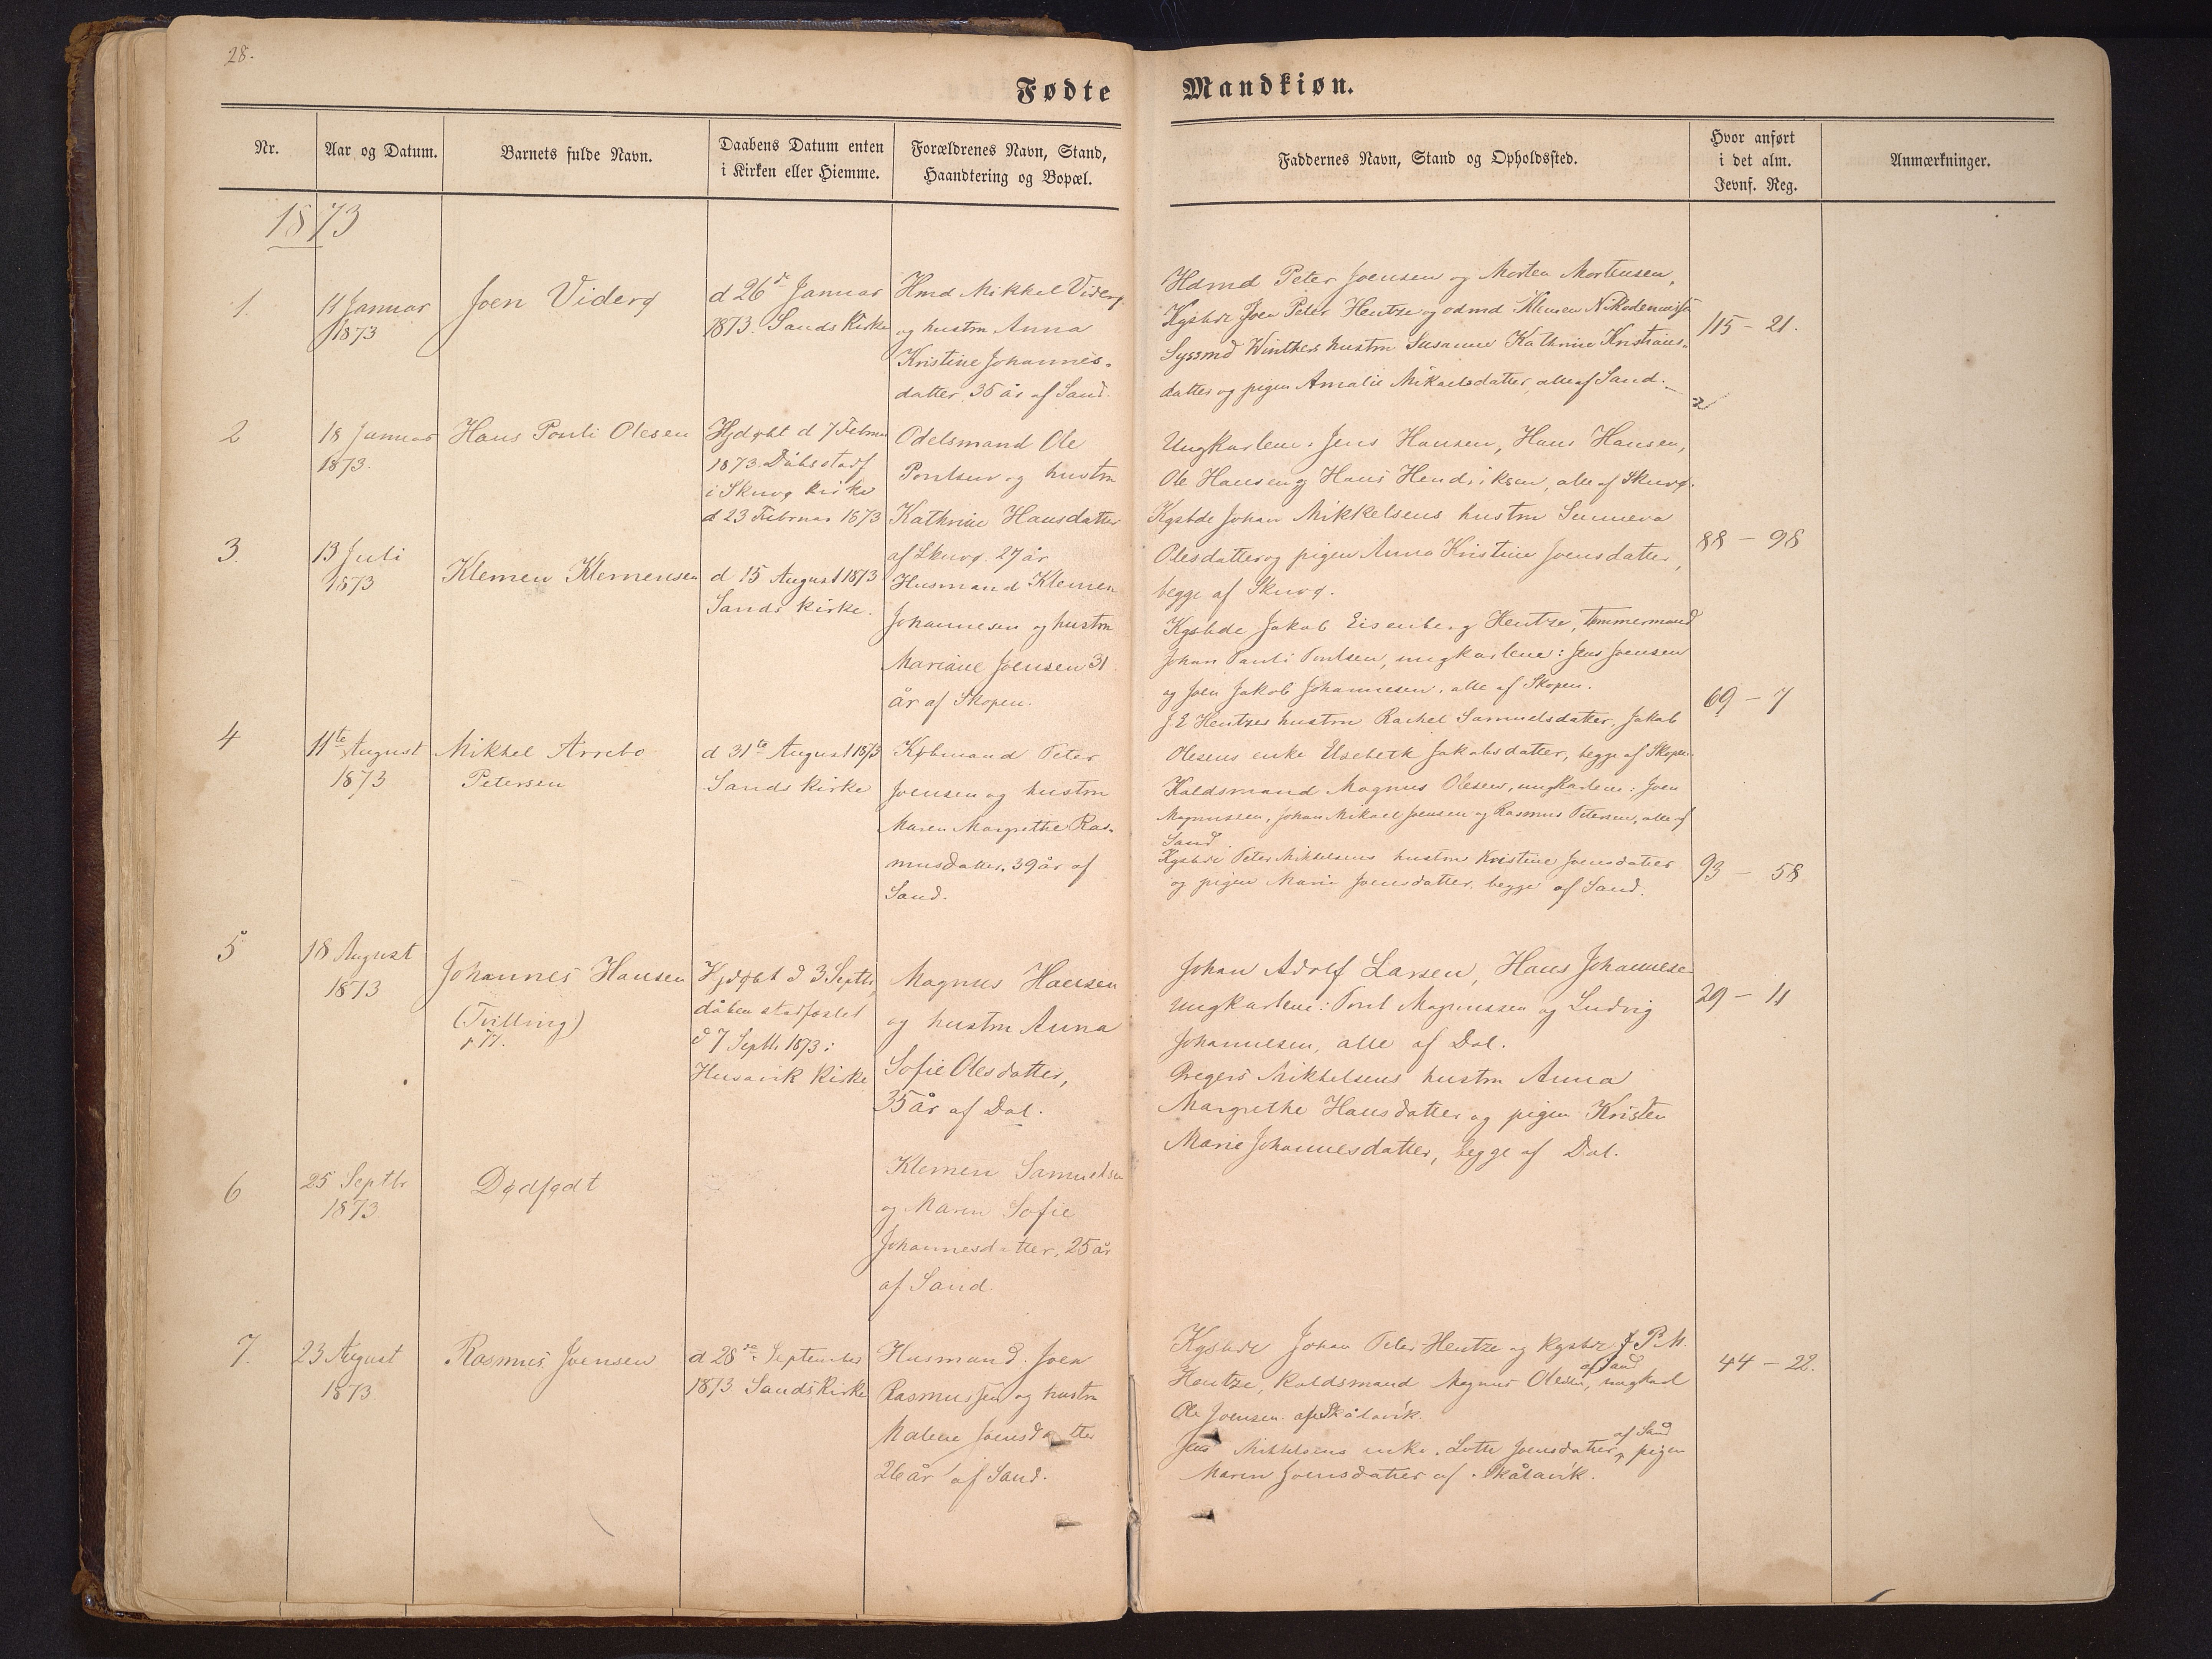 28.
Fødte Mandkiøn.
Nr.
Aar og Datum.
Barnets fulde Navn.
Daabens Datum enten
i Kirken eller Hiemme.
Forældrenes Navn, Stand,
Haandtering og Bopæl.
Faddernes Navn, Stand og Opholdssted.
Hvor anført
i det alm.
Jevnf. Reg.
Anmærkninger.
1873
1.
11 Januar
1873
Joen Viderø
d 26de Januar
1873. Sands Kirke
Hmd Mikkel Viderø
og hustru Anna
Kristine Johannes-
datter, 35 år af Sand.
Hdmd Peter Joensen og Morten Mortensen,
Kgsbde Joen Peter Hentze og odmd Klemen Nikodemussen
Syssmd Winthers hustru Susanne Kathrine Kristians-
datter og pigen Amalie Mikaelsdatter, alle af Sand.
115 - 21.
2
18 Januar
1873.
Hans Pouli Olesen
Hjdøbt d 7 Februar
1873. Dåbs stadf
i Skuvø kirke
d 23 Februar 1873
Odelsmand Ole
Poulsen og hustru
Kathrine Hansdatter
af Skuvø. 27 år
Ungkarlene: Jens Hansen, Hans Hansen,
Ole Hansen og Hans Hendriksen, alle af Skuvø.
Kgsbde Johan Mikkelsens hustru Sunneva
Olesdatter og pigen Anna Kristine Joensdatter,
begge af Skuvø.
88 - 98
3.
13 Juli
1873
Klemen Klemensen
d 15 August 1873
Sands kirke.
Husmand Klemen
Johannesen og hustru
Mariane Joensen 31
år af Skopen.
Kgsbde Jakob Eisenberg Hentze, Tømmermand
Johan Pauli Poulsen, ungkarlene: Jens Joensen
og Joen Jakob Johannesen, alle af Skopen.
J E Hentzes hustru Rachel Samuelsdatter, Jakob
Olesens enke Elsebeth Jakobsdatter, begge af Skopen.
69 - 7
4
11te August
1873
Mikkel Arrebo
Petersen
d 31te August 1873
Sands Kirke
Købmand Peter
Joensen og hustru
Maren Margrethe Ras-
musdatter. 39 år af
Sand.
Koldsmand Magnus Olesen, ungkarlene: Joen
Magnussen, Johan Mikael Joensen og Rasmus Petersen, alle af
Sand.
Kgsbde Peter Mikkelsens hustru Kristine Joensdatter
og pigen Marie Joensdatter, begge af Sand.
93 - 58
5
18 August
1873
Johannes Hansen
(Tvilling)
Hjdøbt d 3 Septbr,
dåben stadfæstet
d 7 Septbr 1873 i
Husavik Kirke
Magnus Hansen
og hustru Anna
Sofie Olesdatter,
35 år af Dal.
Johan Adolf Larsen, Hans Johannesen
ungkarlene: Poul Magnussen og Ludvig
Johannesen, alle af Dal.
Gregers Mikkelsens hustru Anna
Margrethe Hansdatter og pigen Kristen
Marie Johannesdatter, begge af Dal.
29 - 11
6
25 Septbr
1873
Dødfødt
Klemen Samuelsen
og Maren Sofie
Johannesdatter, 25 år
af Sand.
7.
23 August
1873.
Rasmus Joensen
d 28de September
1873 Sands Kirke
Husmand Joen
Rasmussen og hustru
Malene Joensdatter
26 år af Sand.
Kgsbde Johan Peter Hentze og kgsbde J P M.
Hentze, koldsmand Magnus Olesen, af Sand ungkarl
Ole Joensen af Skålavik.
Jens Mikkelsens enke Lotte Joensdatter af Sand, pigen
Maren Joensdatter af Skålavik.
44 - 22.